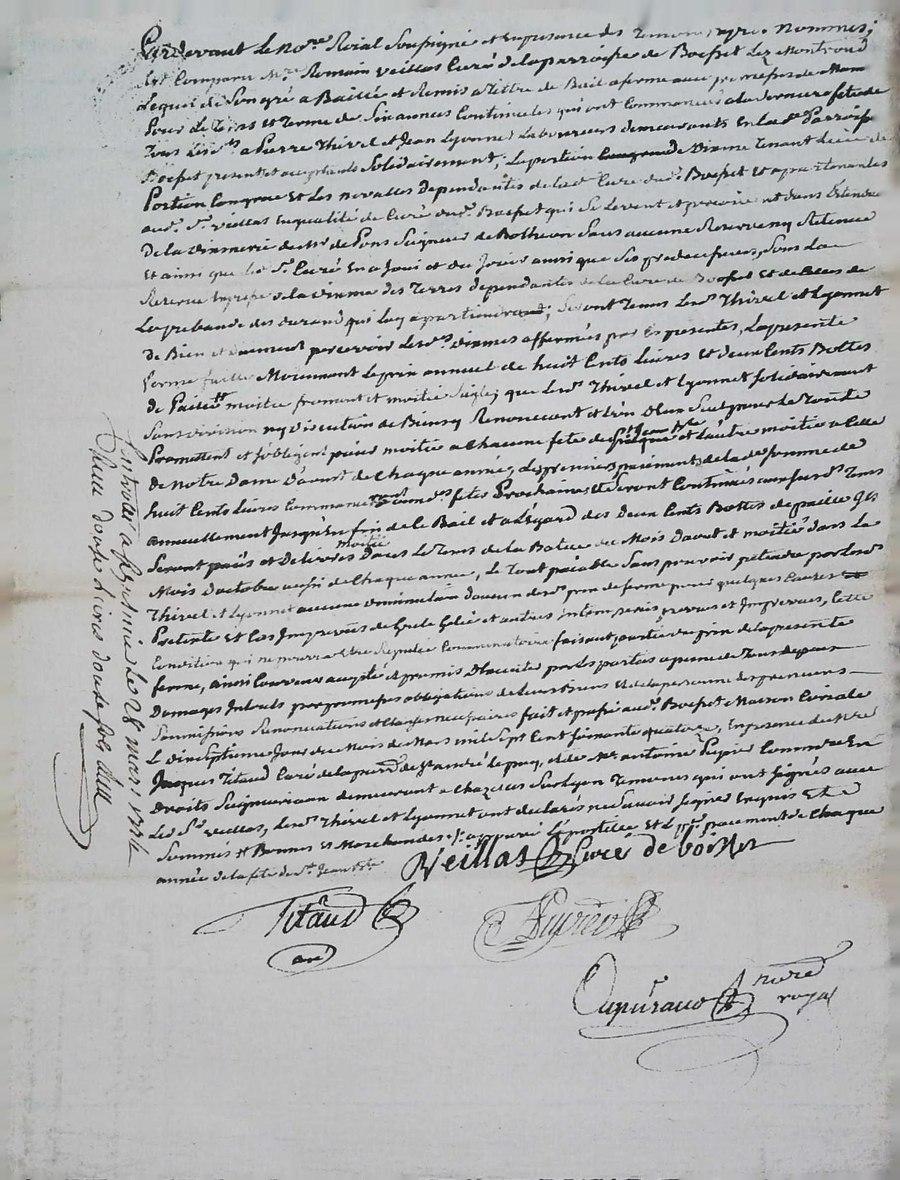 Pardevant le no.re Roial Soussigné et en presence des temoins apres Nommes;
Est Comparu M.re Romain Veillas Curé de la parroisse de Boisset Lez Montrond
Lequel de Son gré a Baillé et Remis a titre de Bail a ferme aux promesses de
Pour le tems et terme de Six années Continuelles qui ont Commancé a la derniere fete de
Tous les a Pierre Thivel et Jean Lyonnet Laboureurs demeurants en lad. Parroisse
Boisset presents et acceptants Solidairement, La portion de Dixme tenant lieu de
Portion Congrue et Les novalles dependantes de lad. Cure dud. Boisset et apartenantes
aud. S.r Veillas en qualité de Curé dud. Boisset qui Se Levent et percoivent dans l'etendue
de la dixmerie de M.r de Pons Seigneur de Botheon Sans aucune Reserve ny Retenue
Et ainsi que led. S.r Curé en a Joui et du Jouir ainsi que Ses predecesseurs, Sous la
Reserve Expresse de la Dixme des Terres dependantes de la Cure de Boisset et de Celles de
La prebande des durand qui luy apartiendra; Seront Tenus Les.d Thivel et Lyonnet
de Bien et duement percevoir Lesd. dixmes affermées par Ces presentes, La presente
ferme faitte Moiennant Le prix annuel de huit Cents Livres et deux Cents Bottes
de Paille moitié froment et moitié Seigle; que Lesd. Thivel et Lyonnet Solidairement
Sans division ny discution de Biens y Renoncent et L'un d'eux Seul pour le toute
Promettent et S'obligent païer moitié a Chacune fete de St Jean Bte et L'autre moitié a Celle
de Notre Dame D'aoust de Chaque année, Les premiers paiements de lad. Somme de
huit Cents Livres Commanceront fetes Prochaines et Seront Continués auxd. Tems
annuellement Jusqu'en fin de Ce Bail et a L'egard des deux Cents Bottes de paille Elles
Seront païés et Delivrés moitié dans Le Tems de la Batue du Mois D'aout et moitié dans Le
Mois D'octobre aussi de Chaque année, Le Tout païable Sans pouvoir pretendre par lesd.
Thivel et Lyonnet aucune diminution d'aucun des.d prix de ferme pour quelques Causes
Pretexte et Cas Imprevus de Grele Gelée et autres Intemperies prevues et Imprevues, Cette
Condition qui ne pourra etre Reputée Comminatoire faisant partie du prix de la presente
ferme, ainsi Convenu accepté et promis D'executer par Les parties a peine de Tous depens
Domages Interets par promesses obligations de leurs Biens et de la personne des preneurs
Soumissions Renonciations et Clauses necessaires fait et passé aud. Boisset Maison Curiale
Le dixseptieme Jour du Mois de Mars mil Sept Cent Soixante quatorze, En presence de M.re
Jacques Titaud Curé de la parr.sse de St André le puy, et de M.r antoine Commre En
Droits Seigneuriaux demeurant a Chazelles Sur Lyon Temoins qui ont Signés avec
Led. S.r Veillas, Lesd. Thivel et Lyonnet ont declarés ne Savoir Signer Enquis Et
Sommés et Bonnes et Marchandes approuvé L'apostille et paiement de Chaque
année de la fete de St. Jean Bte
Veillas Curé de boisset
Titaud
curé
Dupuy
nore
royal
Controllé a le 28 mars 1774
Reçu douze livres douze sols